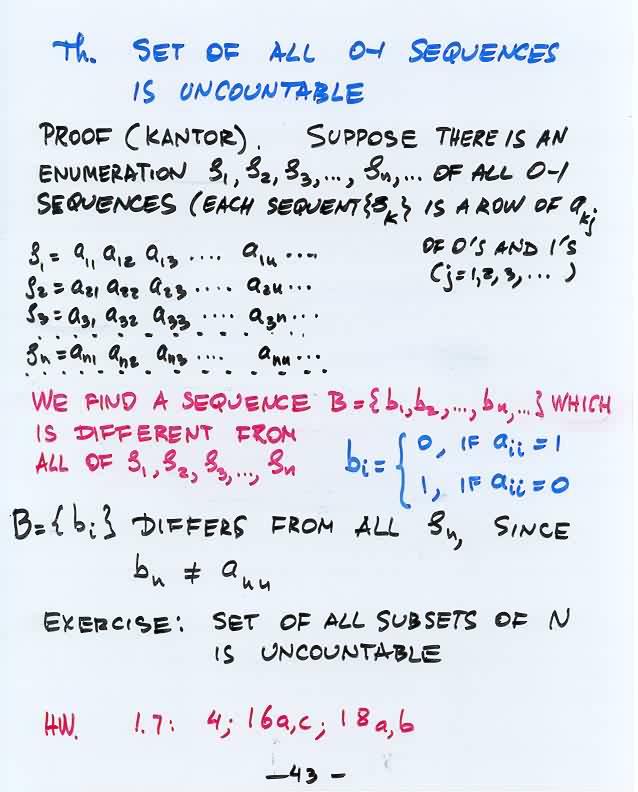 Th. SET OF ALL 0-1 SEQUENCES
IS UNCOUNTABLE
PROOF (KANTOR). SUPPOSE THERE IS AN
ENUMERATION S₁, S₂, S₃, ..., Sₙ, ... OF ALL 0-1
SEQUENCES (EACH SEQUENT {S_k} IS A ROW OF a_kj
OF 0'S AND 1'S
(j=1,2,3,...)
S₁ = a₁₁ a₁₂ a₁₃ .... a₁ₙ ....
S₂ = a₂₁ a₂₂ a₂₃ .... a₂ₙ ...
S₃ = a₃₁ a₃₂ a₃₃ .... a₃ₙ ...
Sₙ = aₙ₁ aₙ₂ aₙ₃ .... aₙₙ ...
WE FIND A SEQUENCE B = {b₁, b₂, ..., bₙ, ...} WHICH
IS DIFFERENT FROM
ALL OF S₁, S₂, S₃, ..., Sₙ
bᵢ = { 0, IF aᵢᵢ = 1
1, IF aᵢᵢ = 0
B = {bᵢ} DIFFERS FROM ALL Sₙ, SINCE
bₙ ≠ aₙₙ
EXERCISE: SET OF ALL SUBSETS OF N
IS UNCOUNTABLE
HW. 1.7: 4; 16a,c; 18a,b
-43-